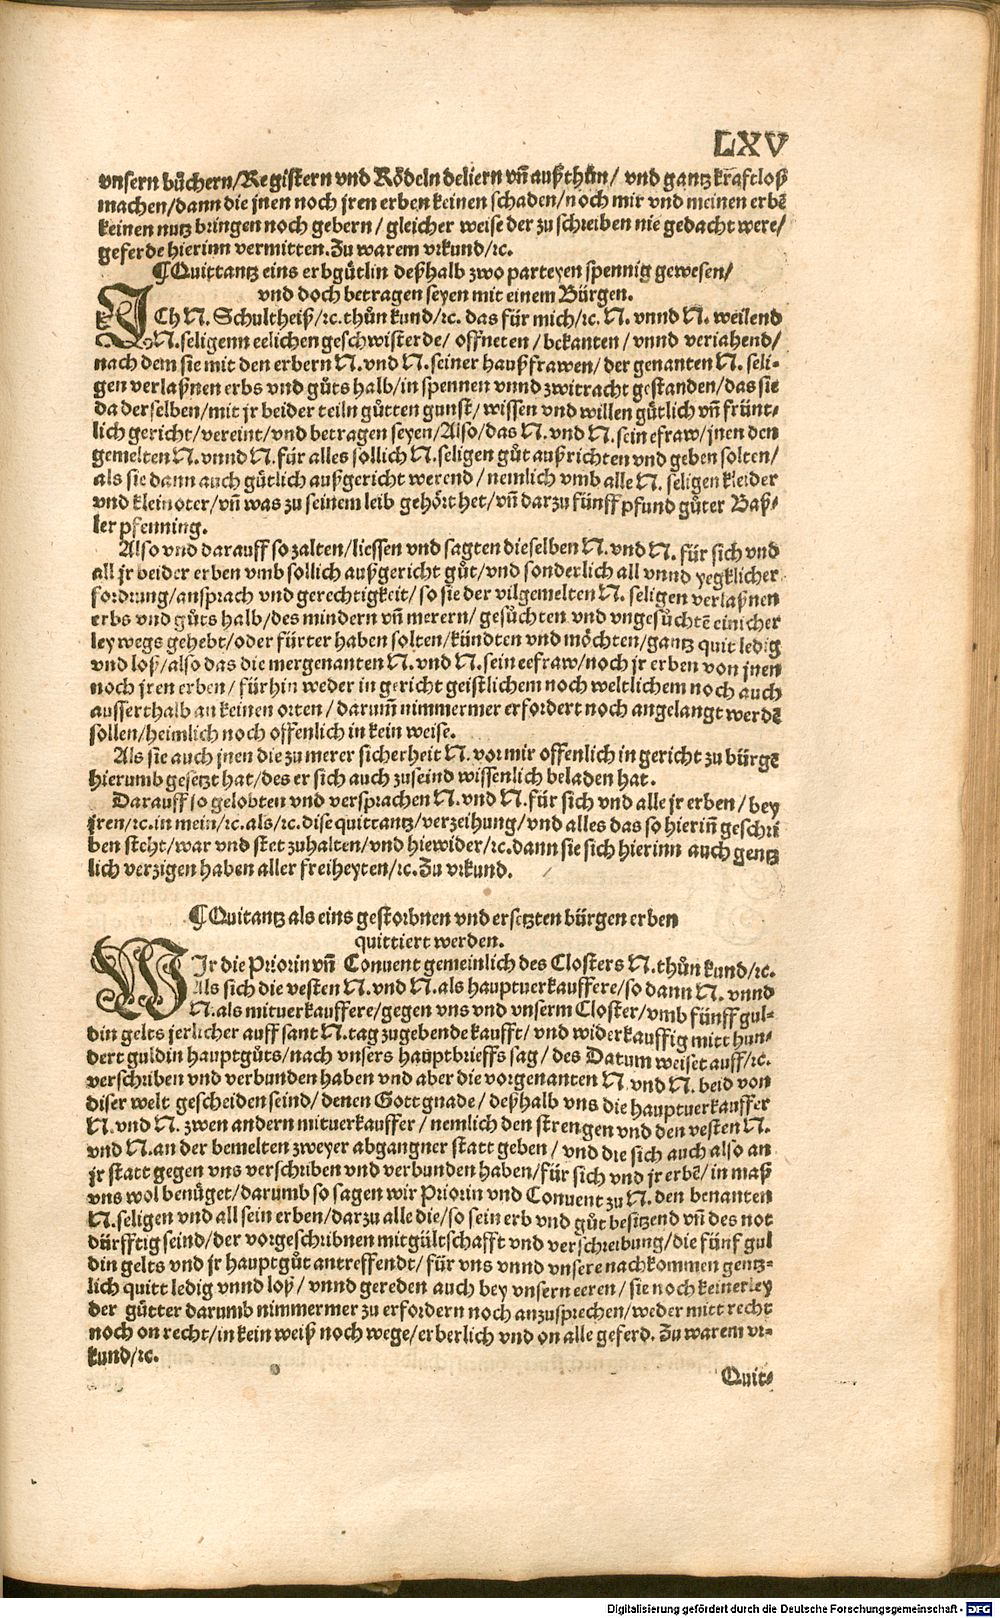 LXV
vnsern bůchern/Registern vnd Rödeln deliern vñ außthůn/ vnd gantz krafftloß
machen/dann die jnen noch jren erben keinen schaden/noch mir vnd meinen erbē
keinen nutz bringen noch gebern/ gleicher weise der zu schreiben nie gedacht were/
geferde hierinn vermitten. Zu warem vrkund/⁊c.
¶Quittantz eins erbgůtlin deßhalb zwo parteyen spennig gewesen/
vnd doch betragen seyen mit einem Bürgen.
ICh N. Schultheiß/⁊c. thůn kund/⁊c. das für mich/⁊c. N. vnnd N. weilend
N. seligenn eelichen geschwisterde/ offneten/ bekanten/ vnnd veriahend/
nach dem sie mit den erbern N. vnd N. seiner haußfrawen/ der genanten N. seli-
gen verlaßnen erbs vnd gůts halb/in spennen vnnd zwitracht gestanden/das sie
da derselben/mit jr beider teiln gůtten gunst/ wissen vnd willen gůtlich vñ frünt-
lich gericht/vereint/vnd betragen seyen/Also/das N. vnd N. sein efraw/jnen den
gemelten N. vnnd N. für alles sollich N. seligen gůt außrichten vnd geben solten/
als sie dann auch gůtlich außgericht werend/ nemlich vmb alle N. seligen kleider
vnd kleinoter/vñ was zu seinem leib gehört het/vñ darzu fünff pfund gůter Baß-
ler pfenning.
Also vnd darauff so zalten/liessen vnd sagten dieselben N. vnd N. für sich vnd
all jr beider erben vmb sollich außgericht gůt/vnd sonderlich all vnnd yegklicher
fordrung/ansprach vnd gerechtigkeit/ so sie der vilgemelten N. seligen verlaßnen
erbs vnd gůts halb/des mindern vñ merern/ gesůchten vnd vngesůchtē einicher
ley wegs gehebt/oder fürter haben solten/kündten vnd möchten/gantz quit ledig
vnd loß/also das die mergenanten N. vnd N. sein eefraw/noch jr erben von jnen
noch jren erben/ fürhin weder in gericht geistlichem noch weltlichem noch auch
ausserthalb an keinen orten/ darumm̄ nimmermer erfordert noch angelangt werdē
sollen/heimlich noch offenlich in kein weise.
Als sie auch jnen die zu merer sicherheit N. vor mir offenlich in gericht zu bürgē
hierumb gesetzt hat/des er sich auch zuseind wissenlich beladen hat.
Darauff so gelobten vnd versprachen N. vnd N. für sich vnd alle jr erben/ bey
jren/⁊c. in mein/⁊c. als/⁊c. dise quittantz/verzeihung/vnd alles das so hierin̄ geschri
ben steht/war vnd stet zuhalten/vnd hiewider/⁊c. dann sie sich hierinn auch gentz
lich verzigen haben aller freiheyten/⁊c. Zu vrkund.
¶Quitantz als eins gestorbnen vnd ersetzten bürgen erben
quittiert werden.
WIr die Priorin vñ Conuent gemeinlich des Closters N. thůn kund/⁊c.
Als sich die vesten N. vnd N. als hauptuerkauffere/so dann N. vnnd
N. als mituerkauffere/gegen vns vnd vnserm Closter/vmb fünff gul-
din gelts jerlicher auff sant N. tag zugebende kaufft/ vnd widerkauffig mitt hun-
dert guldin hauptgůts/nach vnsers hauptbrieffs sag/ des Datum weiset auff/⁊c.
verschriben vnd verbunden haben vnd aber die vorgenanten N. vnd N. beid von
diser welt gescheiden seind/ denen Gott gnade/ deßhalb vns die hauptuerkauffer
N. vnd N. zwen andern mituerkauffer/ nemlich den strengen vnd den vesten N.
vnd N. an der bemelten zweyer abgangner statt geben/ vnd die sich auch also an
jr statt gegen vns verschriben vnd verbunden haben/für sich vnd jr erbē/in maß
vns wol benüget/darumb so sagen wir Priorin vnd Conuent zu N. den benanten
N. seligen vnd all sein erben/darzu alle die/so sein erb vnd gůt besitzend vñ des not
dürfftig seind/der vorgeschribnen mitgültschafft vnd verschreibung/die fünf gul
din gelts vnd jr hauptgůt antreffendt/ für vns vnnd vnsere nachkommen gentz-
lich quitt ledig vnnd loß/ vnnd gereden auch bey vnsern eeren/ sie noch keinerley
der gütter darumb nimmermer zu erfordern noch anzusprechen/weder mitt recht
noch on recht/in kein weiß noch wege/erberlich vnd on alle geferd. Zu warem vr-
kund/⁊c.
Quit-
Digitalisierung gefördert durch die Deutsche Forschungsgemeinschaft - DFG